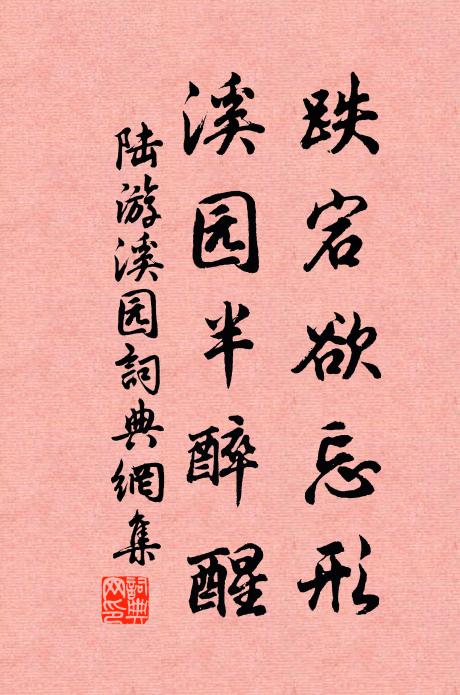 跌宕欲忘形
溪园半醉醒
陆游溪园詞典網集
詞典网印